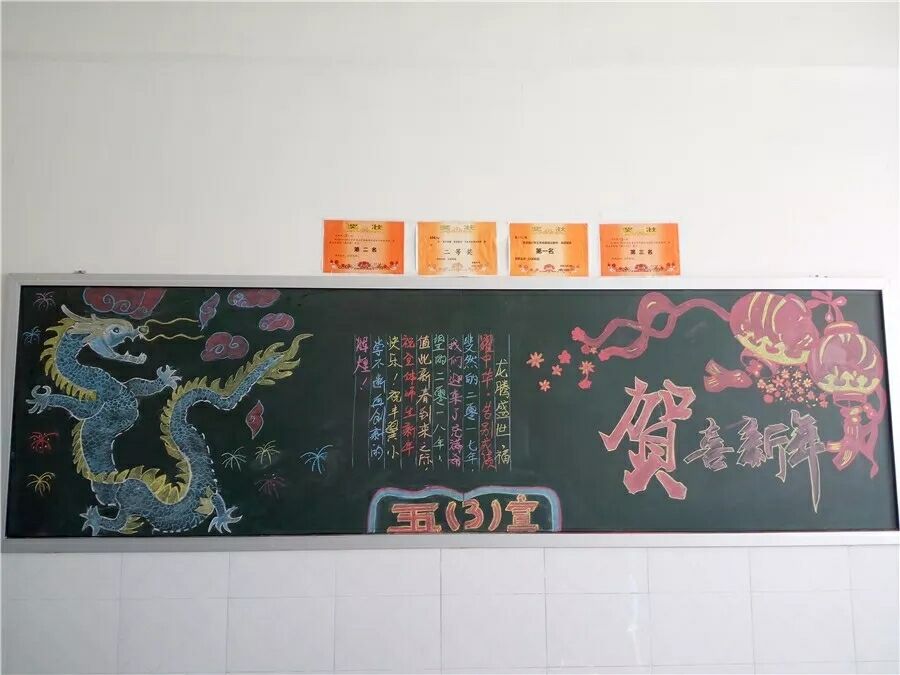 奖状
第二名
奖状
二等奖
奖状
第一名
奖状
第三名
龙腾盛世,福
耀中华!告别硕果
斐然的二零一七年
我们迎来了充满希
望的二零一八年,
值此新春到来之际
祝全体师生新年
快乐!祝丰翼小
学不断再创新的
辉煌!
贺喜新年
五(3)宣